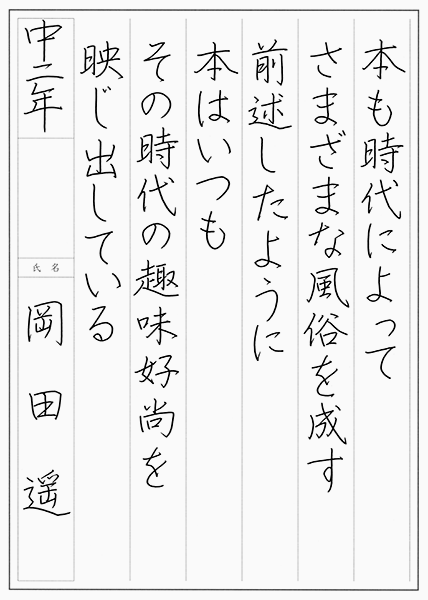 本も時代によって
さまざまな風俗を成す
前述したように
本はいつも
その時代の趣味好尚を
映じ出している
中二年
氏名
岡田遥